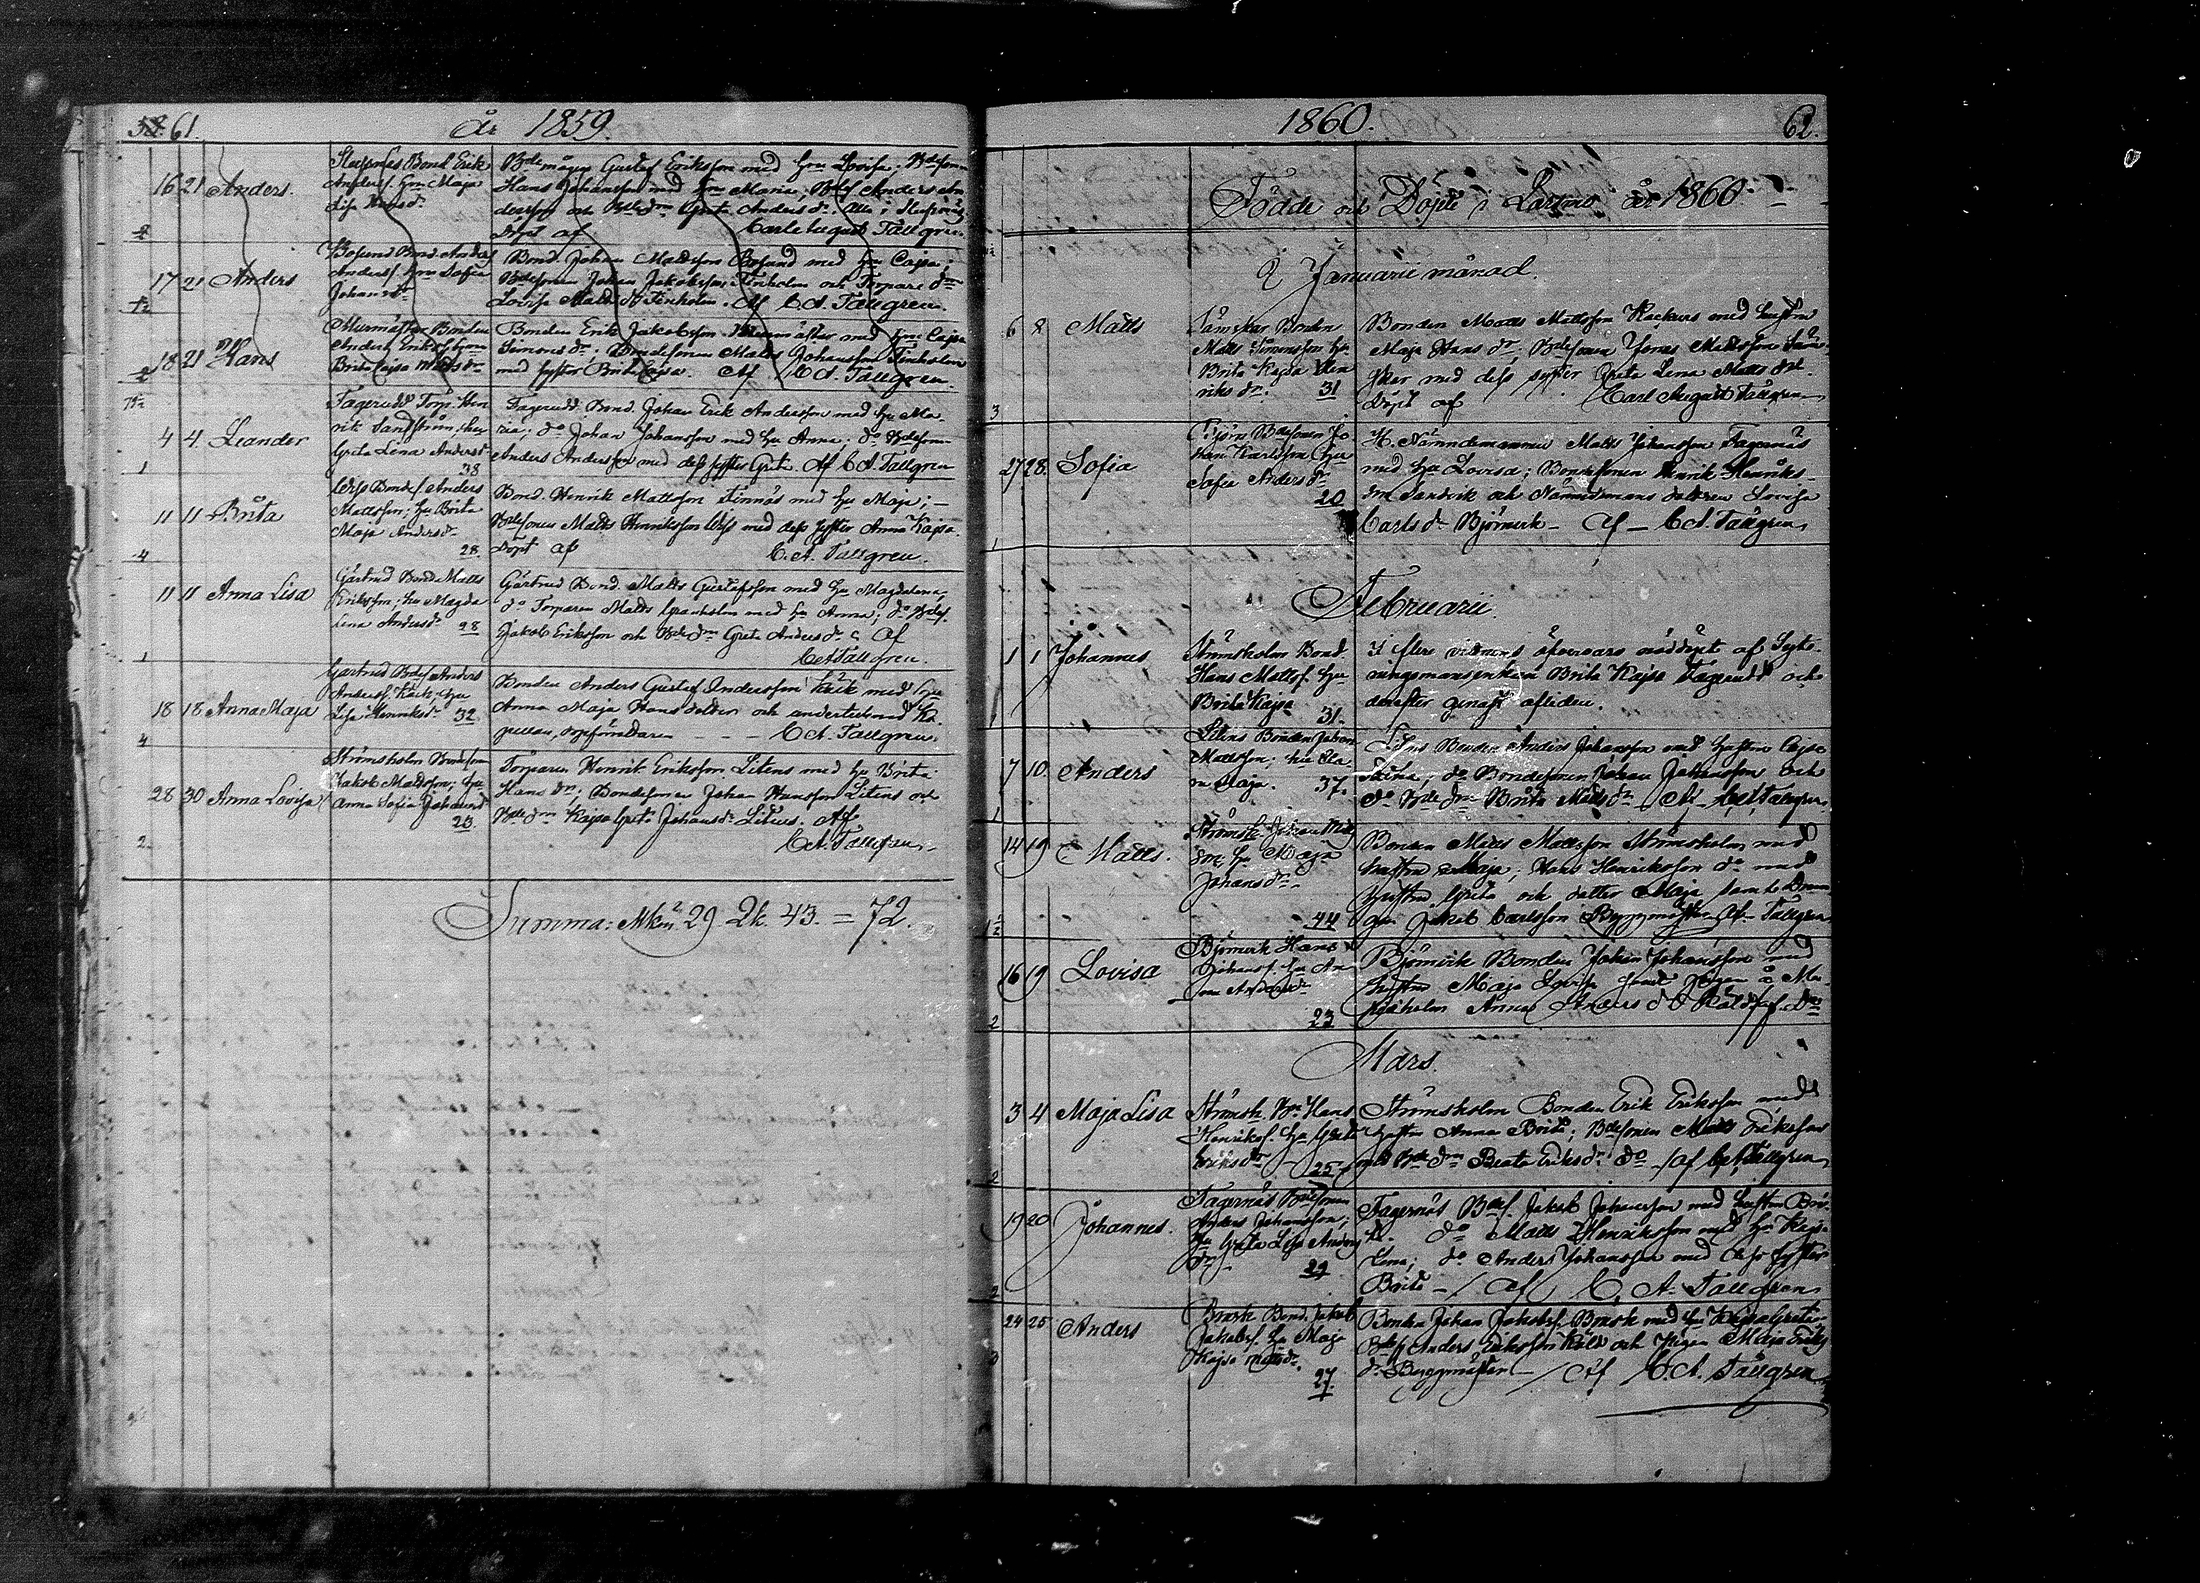 58 61.
År 1859.
16 21 Anders.
Bond Erik
Anderss. Hu Maja
Lisa
Gustaf Eriksson med Hu Lovisa, Bdeson
Hans Johansson med Hu Maria, Bdes. Anders An
dersson och Bde dr Greta Anders dr. alla i
Döpt af Carl August Tallgren
17 21 Anders
Bosund Bond. Anders
Anderss. Hu Sofia
Johansdr
Bond. Johan Mattsson Bosund med Hu Cajsa;
Bdesonen Johan Jakobsson Finholm och Torpare dr
Lovisa Matts dr Finholm. Af C. A. Tallgren.
18 21 Hans
Murmäster Bonden
Anders Erikss. Hu
Brita Cajsa Mattsdr
Bonden Erik Jakobsson Murmäster med Hu Cajsa
Simons dr; Bondesonen Matts Johansson Finholm
med syster Brita Cajsa. Af C. A. Tallgren.
4 4. Leander
Fagerudd Torp. Hen
rik Sandström, Hu
Greta Lena Andersd
38
Fagerudd Bond. Johan Erik Andersson med Hu Ma
ria; do Johan Johansson med Hu Anna; do Bdeson
Anders Andersson med dess syster Greta. Af C A. Tallgren
1
11 11 Brita
Bonds. Anders
Mattsson; Hu Brita
Maja Andersdr
28.
Bond. Henrik Mattsson Finnäs med Hu Maja; –
Bdesonen Matts Henriksson med dess syster Anna Kajsa.
Döpt af C. A. Tallgren.
4
11 11 Anna Lisa
Gärtrud Bond. Matts
Eriksson; Hu Magda
lena Andersdr 28
Gärtrud Bond. Matts Gustafsson med Hu Magdalena,
do Torparen Matts Granholm med Hu Anna; do Bdes.
Jakob Eriksson och Bde dr Greta Anders dr. Af
C A Tallgren.
1
18 18 Anna Maja
Gärtrud Bdes. Anders
Anderss. Käck; Hu
Lisa Henriksdr 32
Bonden Anders Gustaf Andersson Käck med Hu
Anna Maja Hans dotter och undertecknad Ka
pellan, dopförrättaren – – – C. A. Tallgren.
4
28 30 Anna Lovisa
Strömsholm Bondeson
Jakob Mattsson; Hu
Anna Sofia Johansd
23.
Torparen Henrik Eriksson Litens med Hu Brita
Hans dr; Bondesonen Johan Hansson Litens och
Bde dr Kajsa Greta Johansdr Litens. Af
C. A. Tallgren.
2
Summa: Mkön 29 Qk. 43. = 72.
1860. 62.
Födde och Döpte i Larsmo år 1860.
i Januarii månad.
6 8 Matts
Bonden
Matts Simonsson Hu
Brita Kajsa Hen
riks dr. 31
Bonden Matts Mattsson Kackurs med hustru
Maja Hans dr, Bdesonen Jonas Mattsson
med dess syster Greta Lena Matts dr.
Döpt af Carl August Tallgren
3
27 28. Sofia
Bdesonen Jo
han Karlsson Hu
Sofia Anders dr
20
H. Nämndemannen Matts Johansson Fagernäs
med Hu Lovisa; Bondesonen Henrik Henriks
son Sandvik och Nämndemans dottren Lovisa
Carls dr Björnvik – Af – C A. Tallgren
1
Februarii.
1 1 Johannes
Strömsholm Bond.
Hans Matts. Hu
Brita Kajsa
31.
I flere vittnens öfvervaro nöddöpt af Syt-
ningsmansenkan Brita Kajsa Fagerudd och
derefter genast afliden.
1
7 10. Anders
Litens Bonden Johan
Mattsson; hu Cla
ra Maja. 37.
Litens Bonden Anders Johansson med hustru Cajsa
do Bondesonen Johan Johansson och
do Bde dr Brita Matts dr Af C A Tallgren.
1
14 19 Matts.
Strömsh. Johan Matts
son, Hu Maja
Johans dr
44
Bonden Matts Mattsson Strömsholm med
hustru Maja; Hans Henriksson do med
hustru Greta och dotter Maja samt
Jakob Carlsson Byggmästar Af Tallgren
16 19 Lovisa
Björnvik Hans
Johanss. Hu An
na Andersdr
23
Björnvik Bonden Johan Johansson med
hustru Maja Lovisa samt pigan å Ma
Anna Anders dr
2
Mars.
3 4 Maja Lisa
Strömsh. Bn Hans
Henrikss. Hu Greta
Eriksdr – 25
Strömsholm Bonden Erik Eriksson med
hustru Anna Brita; Bdesonen Matts Eriksson
med Bde dr Beata Eriks dr do – af C A Tallgren
2
19 20 Johannes.
Fagernäs Bdesonen
Anders Johansson;
Hu Greta Lisa Anders
dr 29
Fagernäs Bdes. Jakob Johansson med hustru Bri
ta. do Matts Henriksson med Hu Kajsa
Lena; do Anders Johansson med dess syster
Brita – Af C. A. Tallgren
2
24 25 Anders
Bosk Bond. Jakob
Jakobss. Hu Maja
Kajsa Mattsdr.
27.
Bonden Johan Jakobss. Bosk med Hu Kajsa Greta
Bdes. Anders Eriksson Köld och Pigan Maja Eriks
dr Byggmästar – Af C. A. Tallgren
3